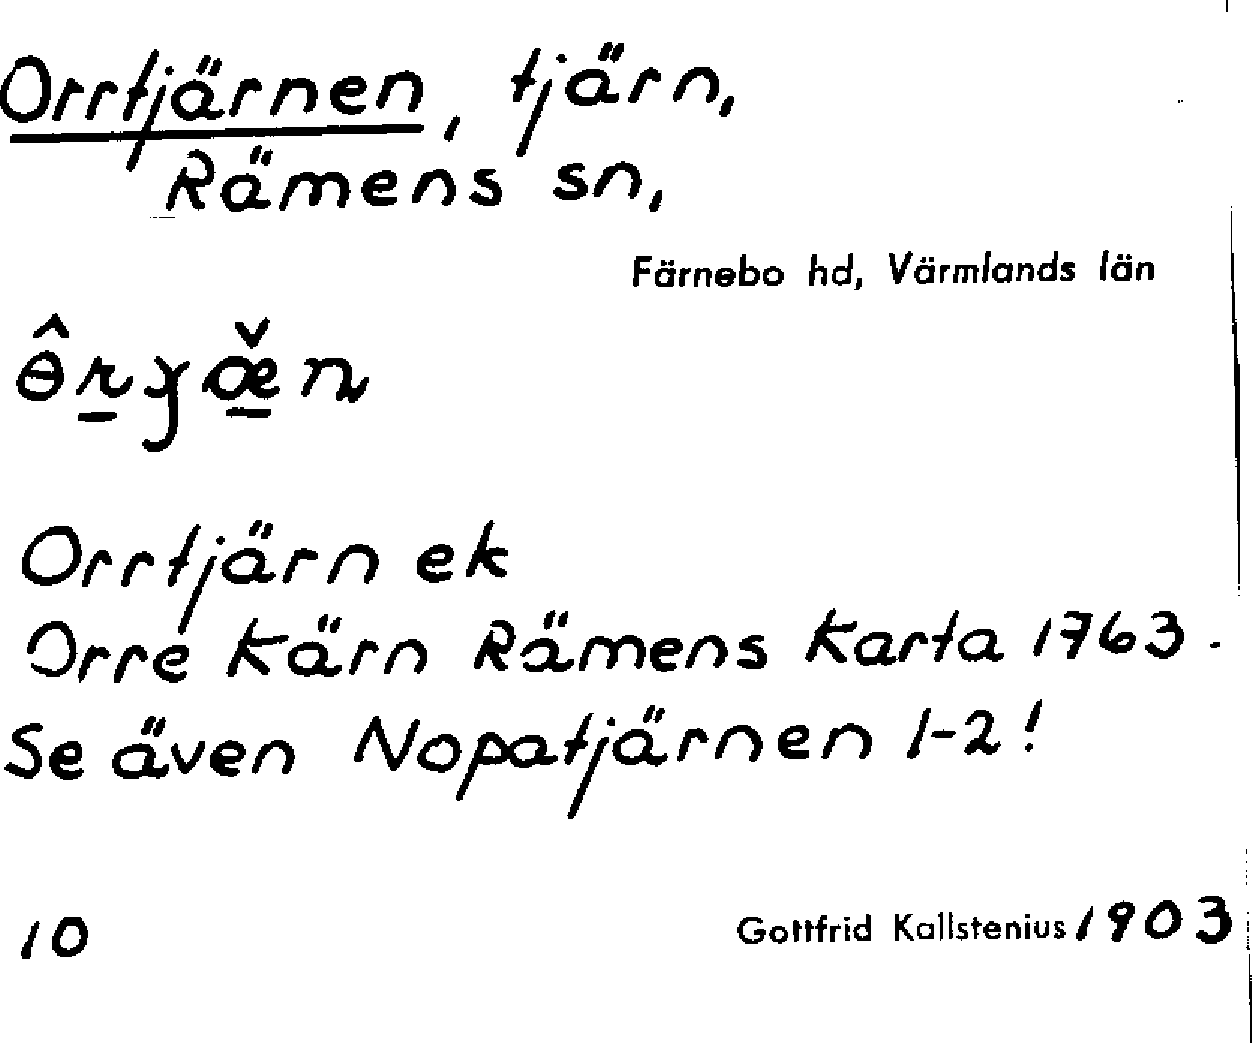 Orrtjärnen, tjärn,
Rämens sn,
Färnebo hd, Värmlands län
Orrtjärn ek
Orre Kärn Rämens Karta 1763.
Se även Nopatjärnen 1-2!
10
Gottfrid Kallstenius 1903